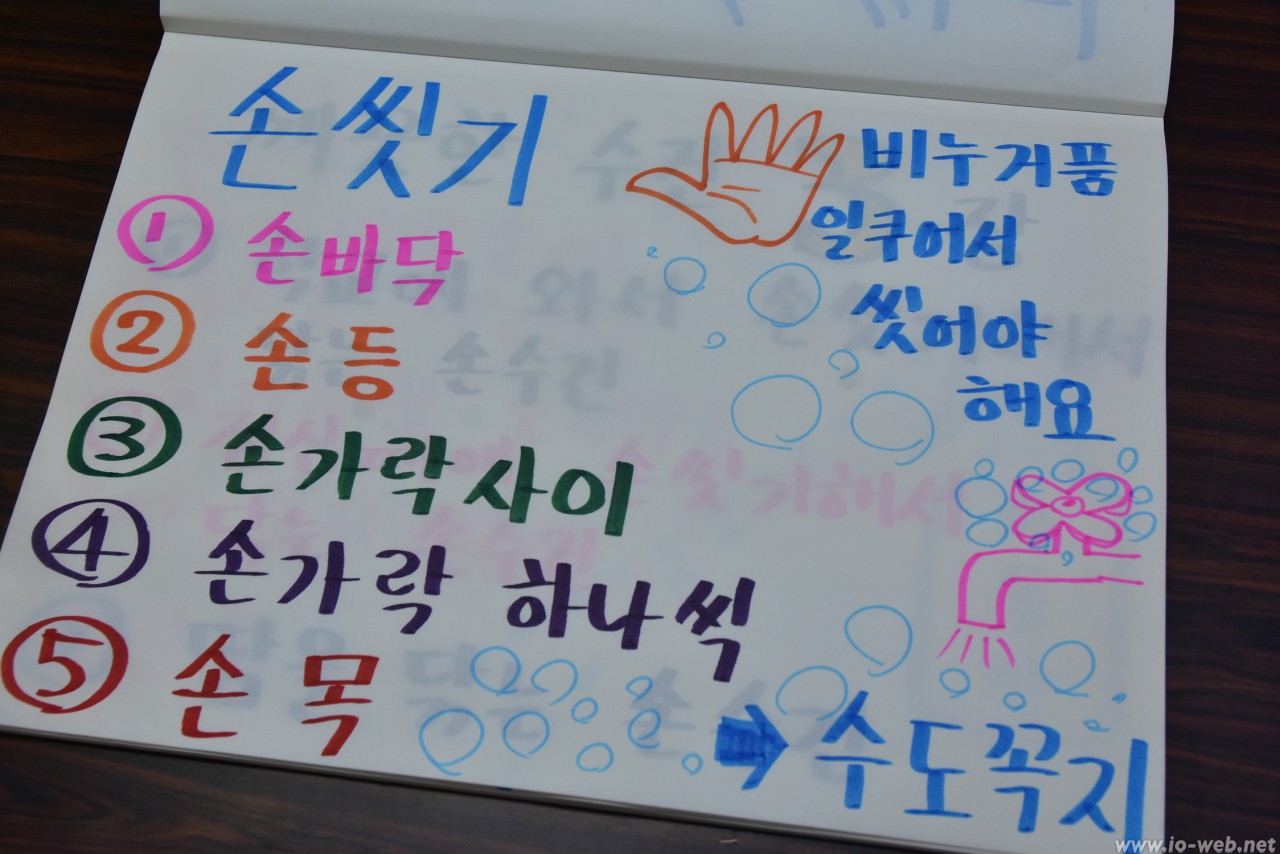 손씻기
① 손바닥
② 손등
③ 손가락사이
④ 손가락 하나씩
⑤ 손목
비누거품
일쿠어서
씻어야
해요
➡ 수도꼭지
www.io-web.net